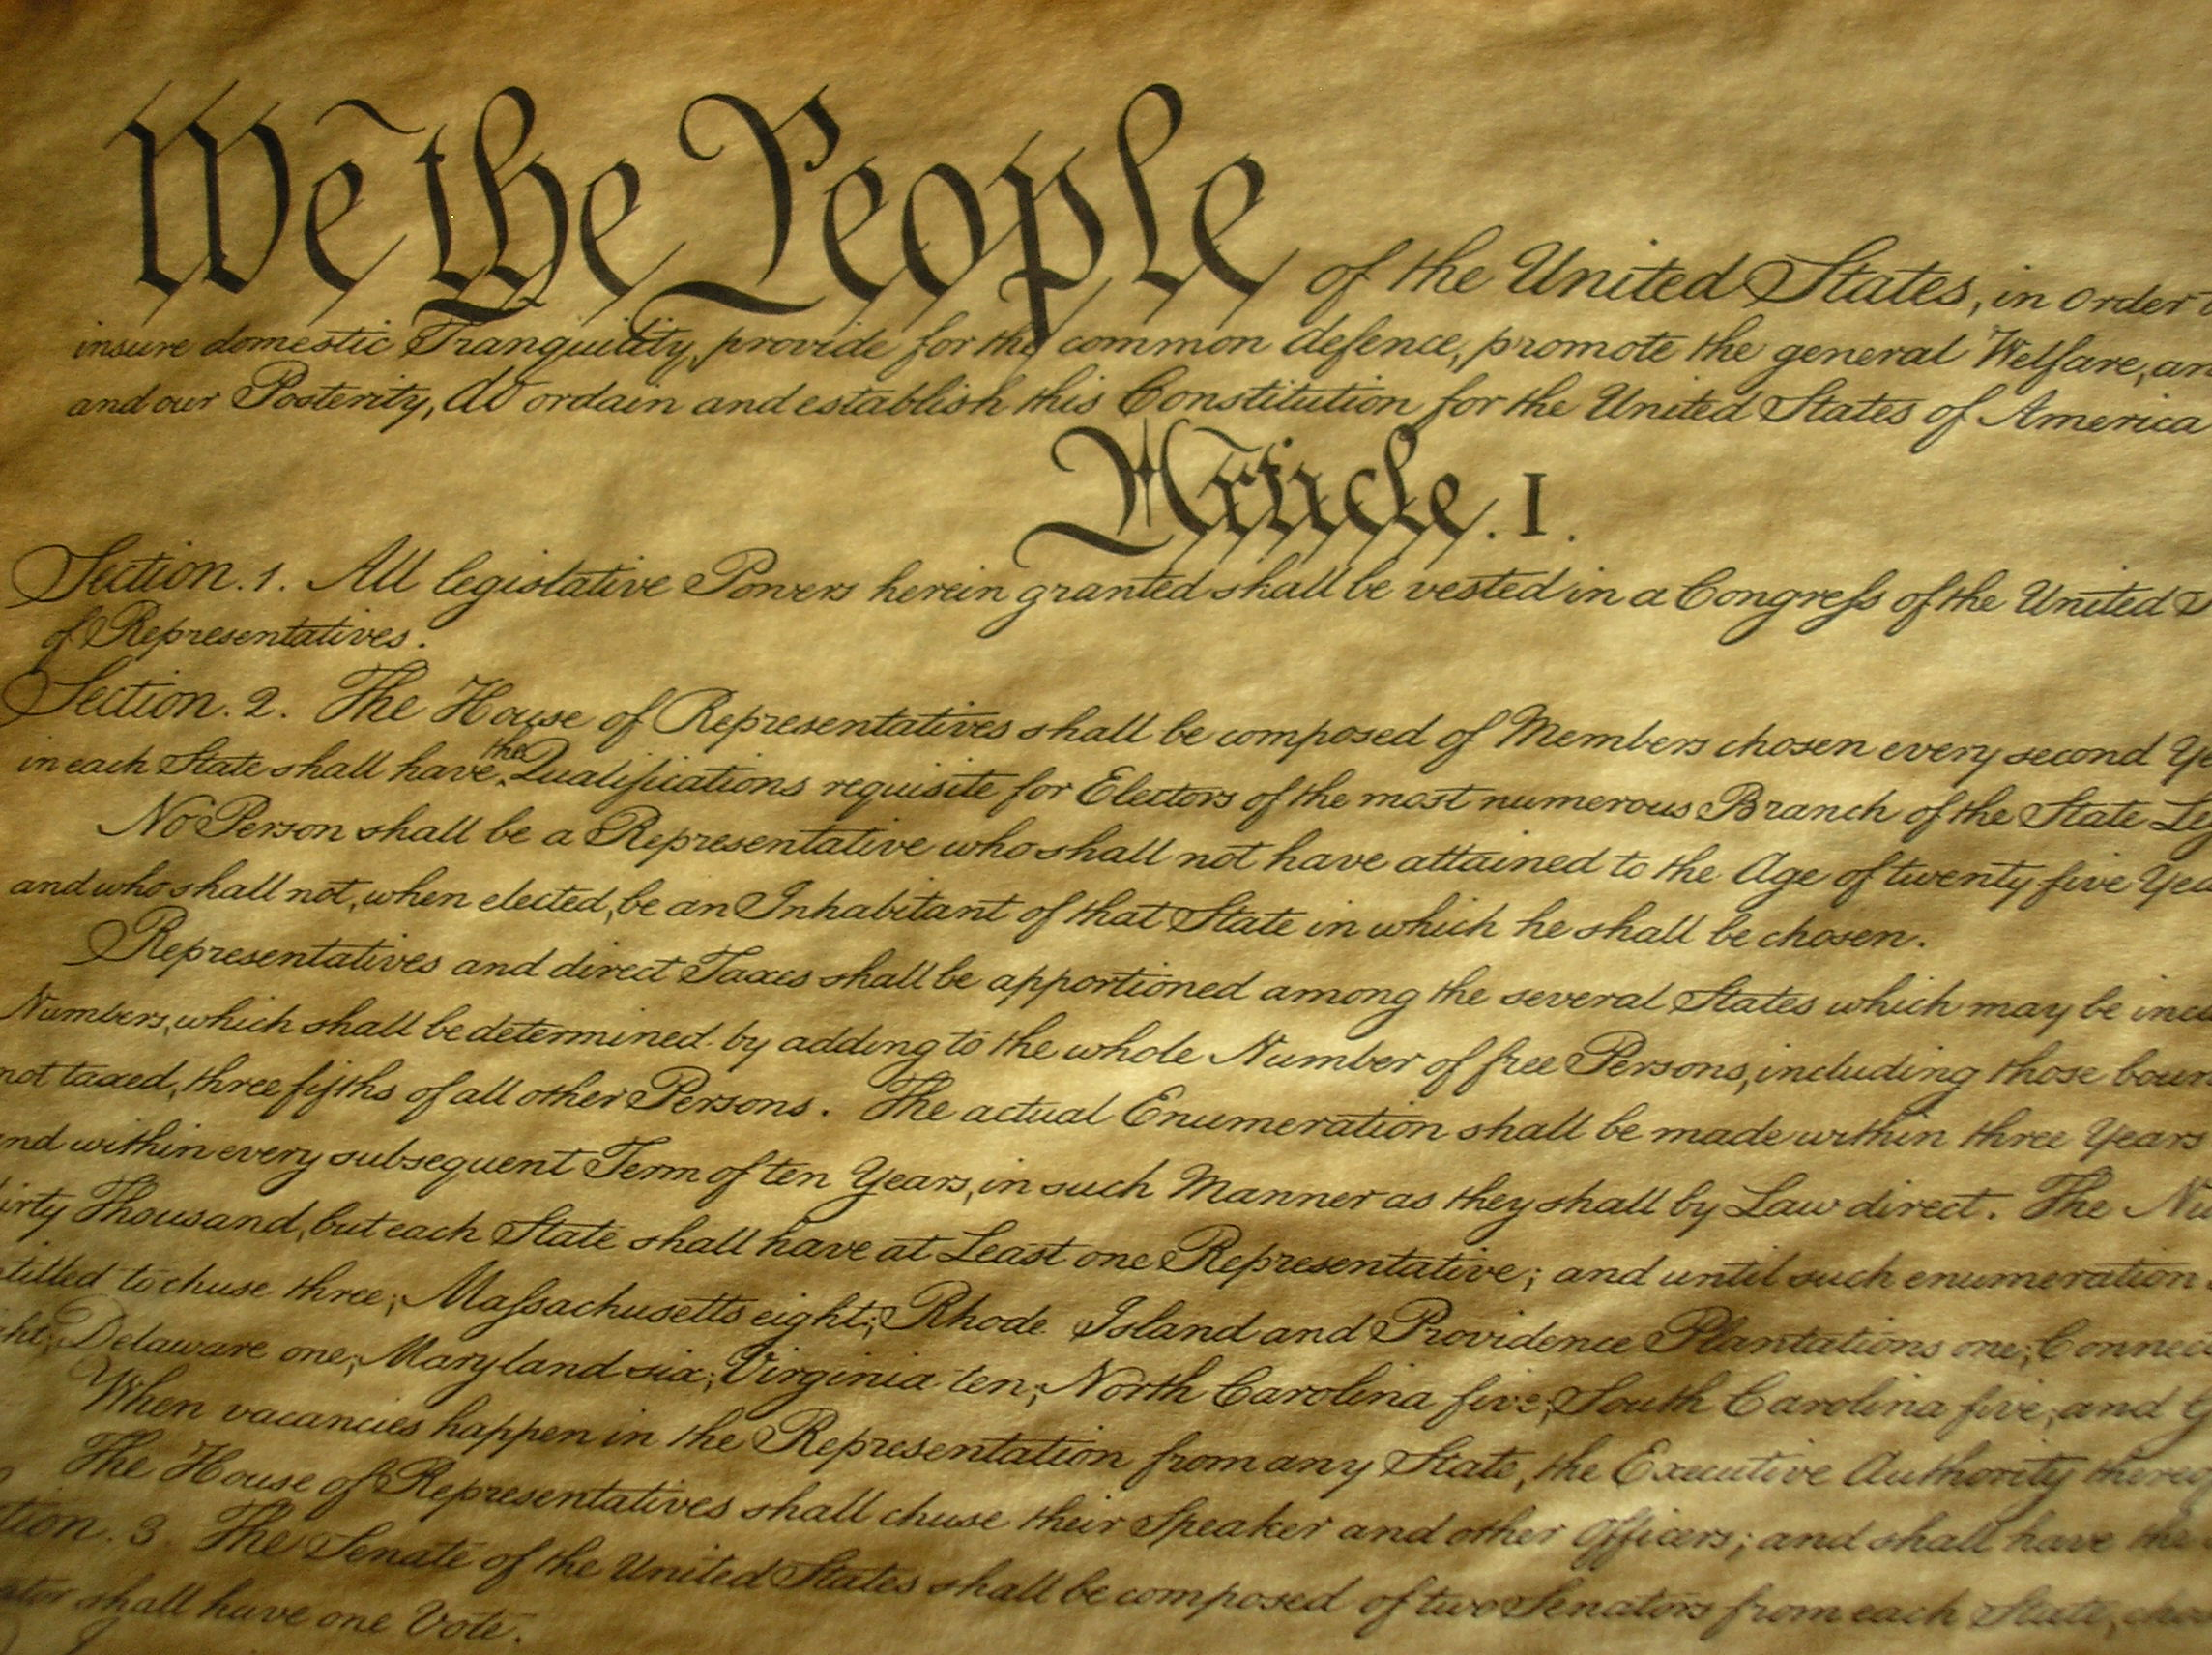 We the People of the United States, in order
insure domestic Tranquility, provide for the common defence, promote the general Welfare, an
and our Posterity, do ordain and establish this Constitution for the United States of America
Article. I.
Section. 1. All legislative Powers herein granted shall be vested in a Congress of the United S
of Representatives.
Section. 2. The House of Representatives shall be composed of Members chosen every second Ye
in each State shall have the Qualifications requisite for Electors of the most numerous Branch of the State Leg
No Person shall be a Representative who shall not have attained to the Age of twenty five Yea
and who shall not, when elected, be an Inhabitant of that State in which he shall be chosen.
Representatives and direct Taxes shall be apportioned among the several States which may be inclu
Numbers, which shall be determined by adding to the whole Number of free Persons, including those boun
not taxed, three fifths of all other Persons. The actual Enumeration shall be made within three Years
nd within every subsequent Term of ten Years, in such Manner as they shall by Law direct. The Nu
irty Thousand, but each State shall have at Least one Representative; and until such enumeration
titled to chuse three, Massachusetts eight, Rhode Island and Providence Plantations one, Connec
ght, Delaware one, Maryland six, Virginia ten, North Carolina five, South Carolina five, and G
When vacancies happen in the Representation from any State, the Executive Authority thereo
The House of Representatives shall chuse their Speaker and other Officers; and shall have the
tion. 3. The Senate of the United States shall be composed of two Senators from each State, cho
ator shall have one Vote.